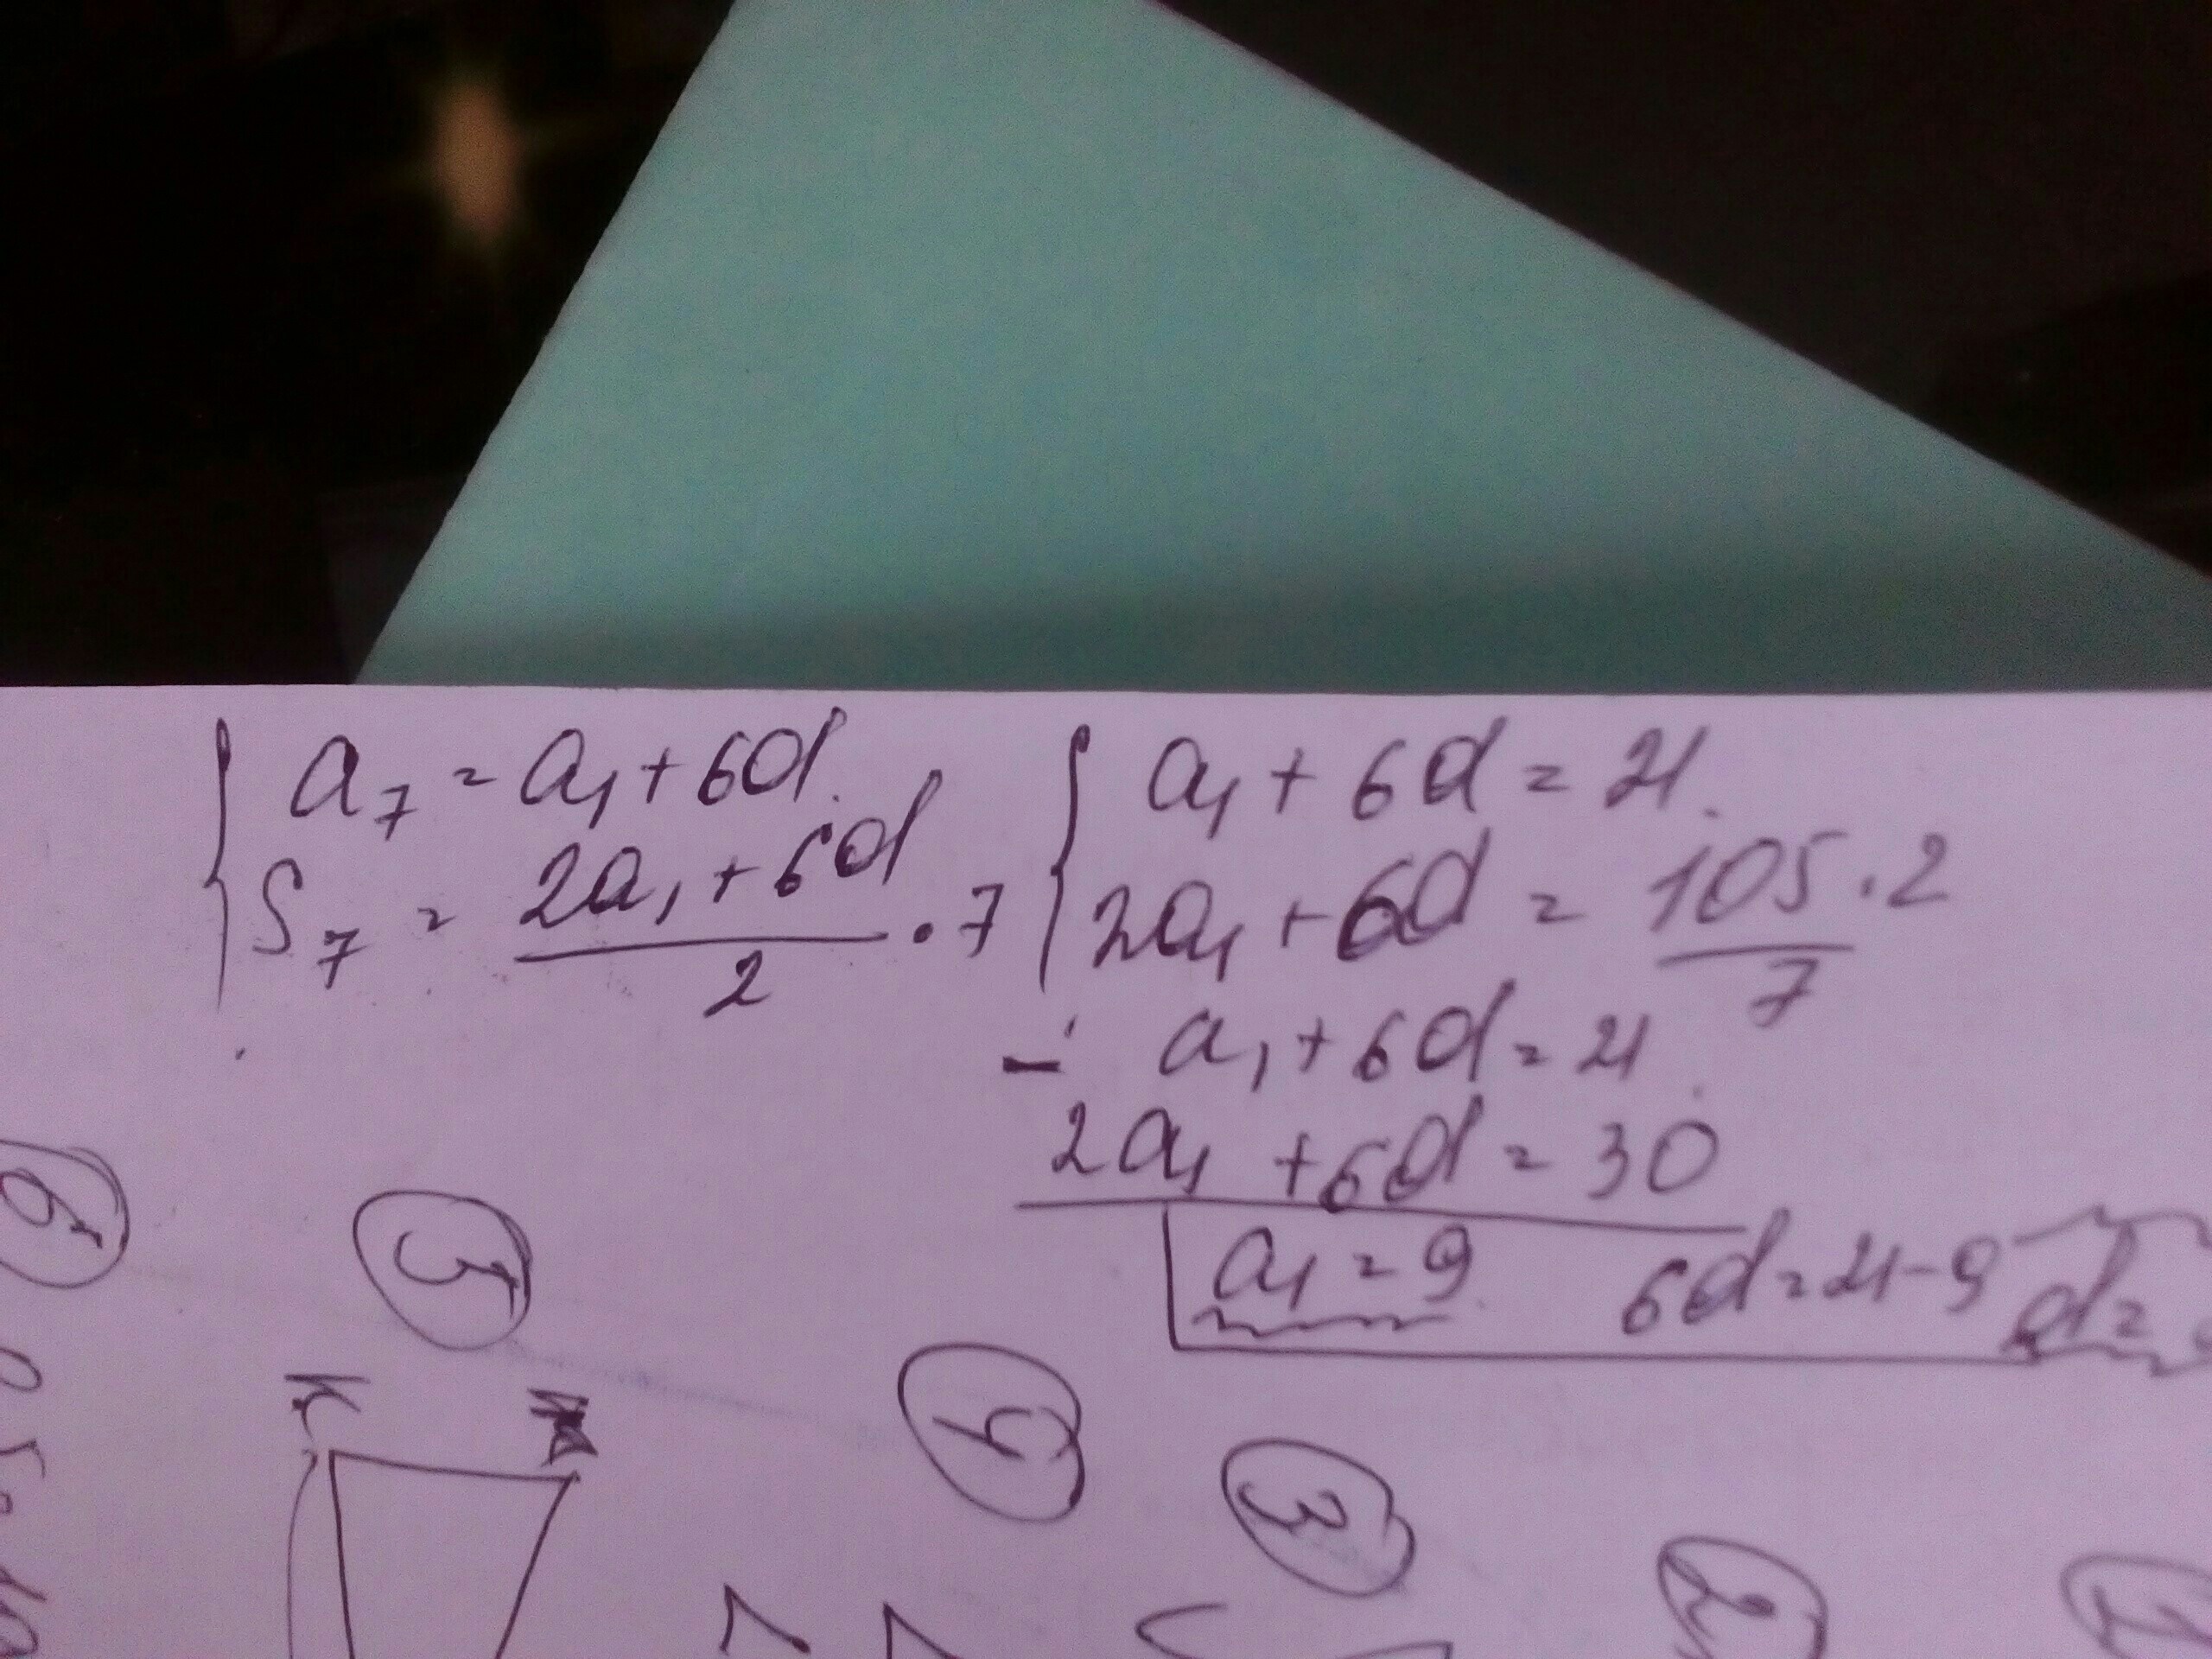 a₇ = a₁ + 6d.
S₇ = (2a₁ + 6d)/2 · 7
a₁ + 6d = 21.
2a₁ + 6d = (105 · 2)/7
− a₁ + 6d = 21
2a₁ + 6d = 30
a₁ = 9. 6d = 21 - 9 d =
6
5
4
3
2
1
K